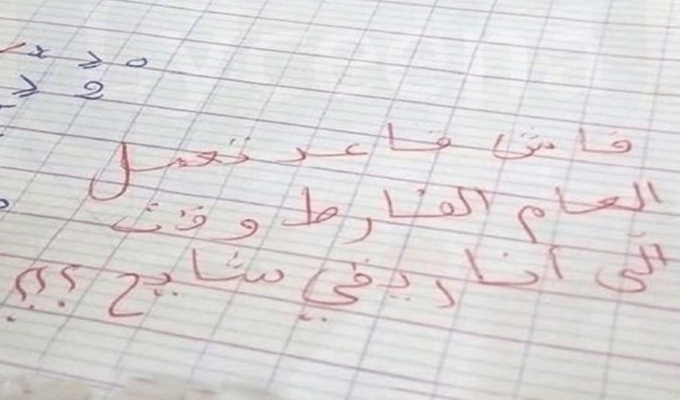 x ⩾ 0
⩾ 2
فاش قاعد تعمل
العام الفارط وقت
الّي أنا ريقي شايح ؟؟؟